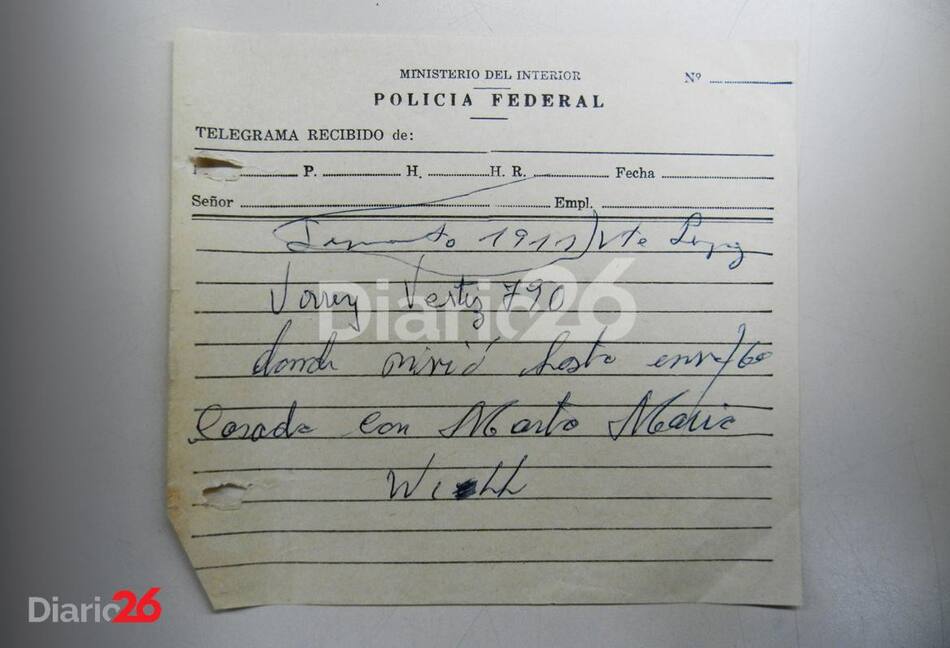 MINISTERIO DEL INTERIOR
Nº
POLICIA FEDERAL
TELEGRAMA RECIBIDO de:
P. H. H. R. Fecha
Señor Empl.
1911) Vte Lopez
Virrey Vertiz 790
donde vivió hasta enre/60
Casado con Marta Maria
Diario26
Diario26